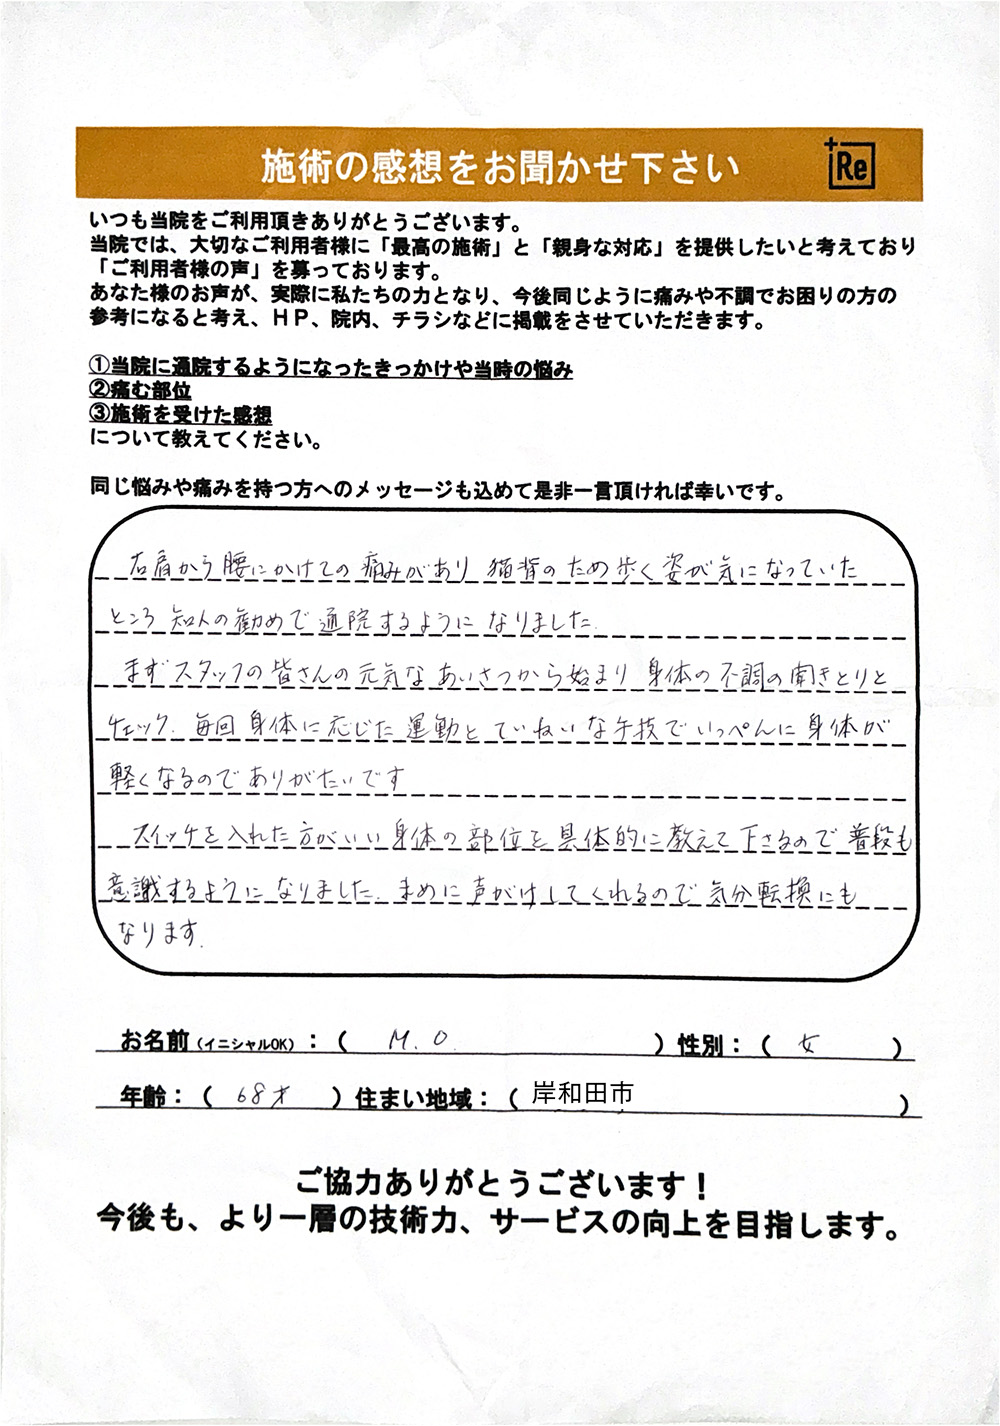 施術の感想をお聞かせ下さい
+Re
いつも当院をご利用頂きありがとうございます。
当院では、大切なご利用者様に「最高の施術」と「親身な対応」を提供したいと考えており
「ご利用者様の声」を募っております。
あなた様のお声が、実際に私たちの力となり、今後同じように痛みや不調でお困りの方の
参考になると考え、ＨＰ、院内、チラシなどに掲載をさせていただきます。
①当院に通院するようになったきっかけや当時の悩み
②痛む部位
③施術を受けた感想
について教えてください。
同じ悩みや痛みを持つ方へのメッセージも込めて是非一言頂ければ幸いです。
右肩から腰にかけての痛みがあり 猫背のため歩く姿が気になっていた
ところ 知人の勧めで通院するようになりました.
まずスタッフの皆さんの元気なあいさつから始まり 身体の不調の聞きとりと
チェック. 毎回身体に応じた運動とていねいな手技でいっぺんに身体が
軽くなるのでありがたいです
スイッチを入れた方がいい身体の部位を具体的に教えて下さるので普段も
意識するようになりました. まめに声がけしてくれるので気分転換にも
なります.
お名前（イニシャルOK）：（ M.O. ）性別：（ 女 ）
年齢：（ 68才 ）住まい地域：（ 岸和田市 ）
ご協力ありがとうございます！
今後も、より一層の技術力、サービスの向上を目指します。